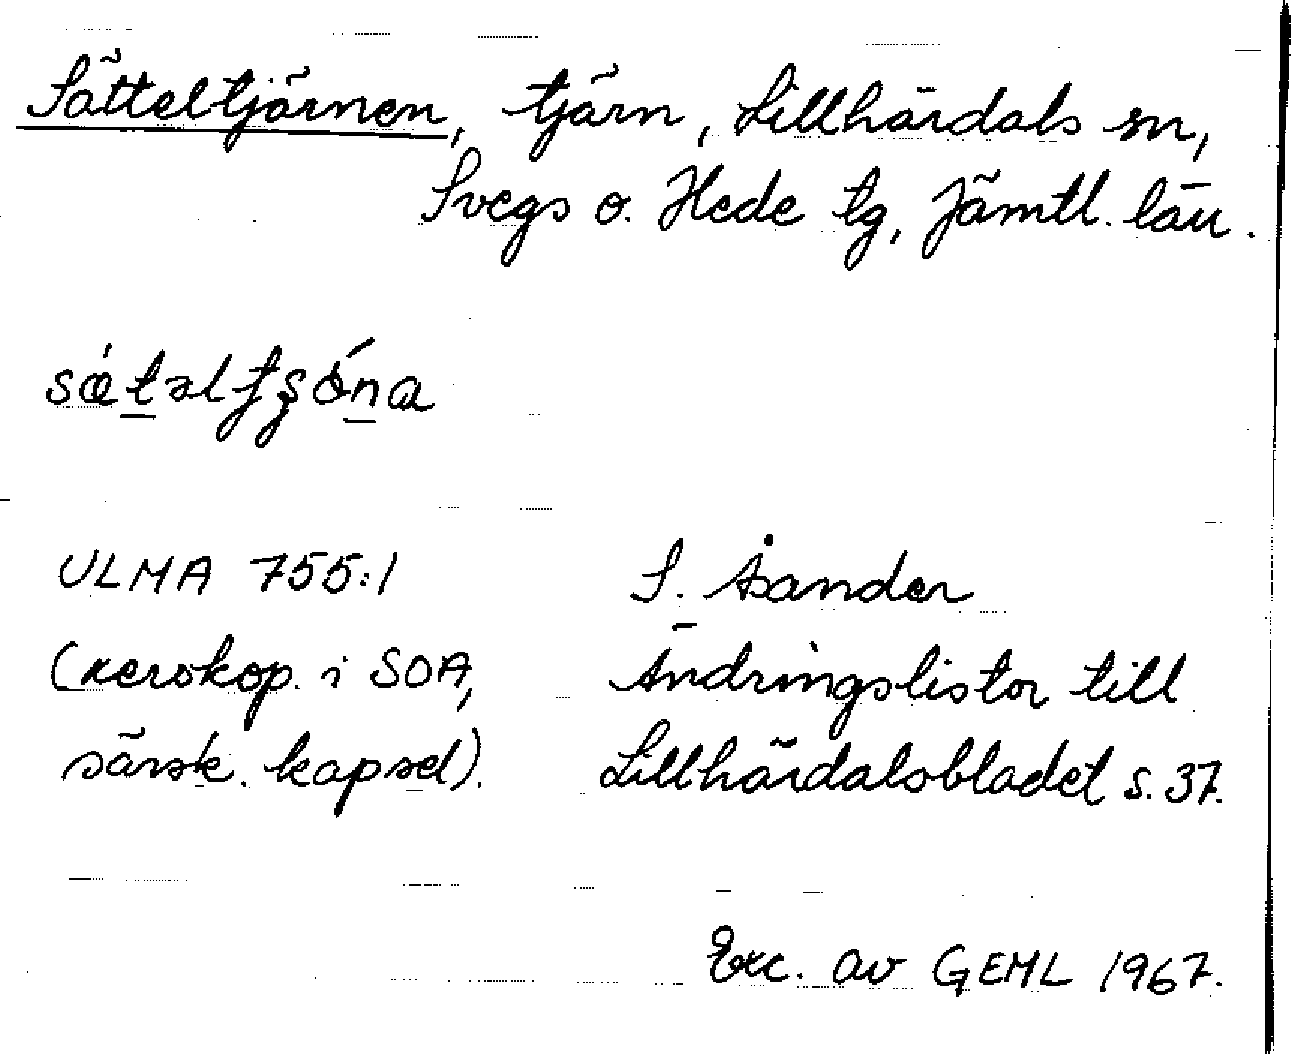 Sätteltjärnen, tjärn, Lillhärdals sn,
Svegs o. Hede tg, Jämtl. län.
ULMA 755:1 S. Åsander
(xerokop. i SOA, Ändringslistor till
särsk. kapsel). Lillhärdalsbladet s. 37.
Exc. av GEML 1967.